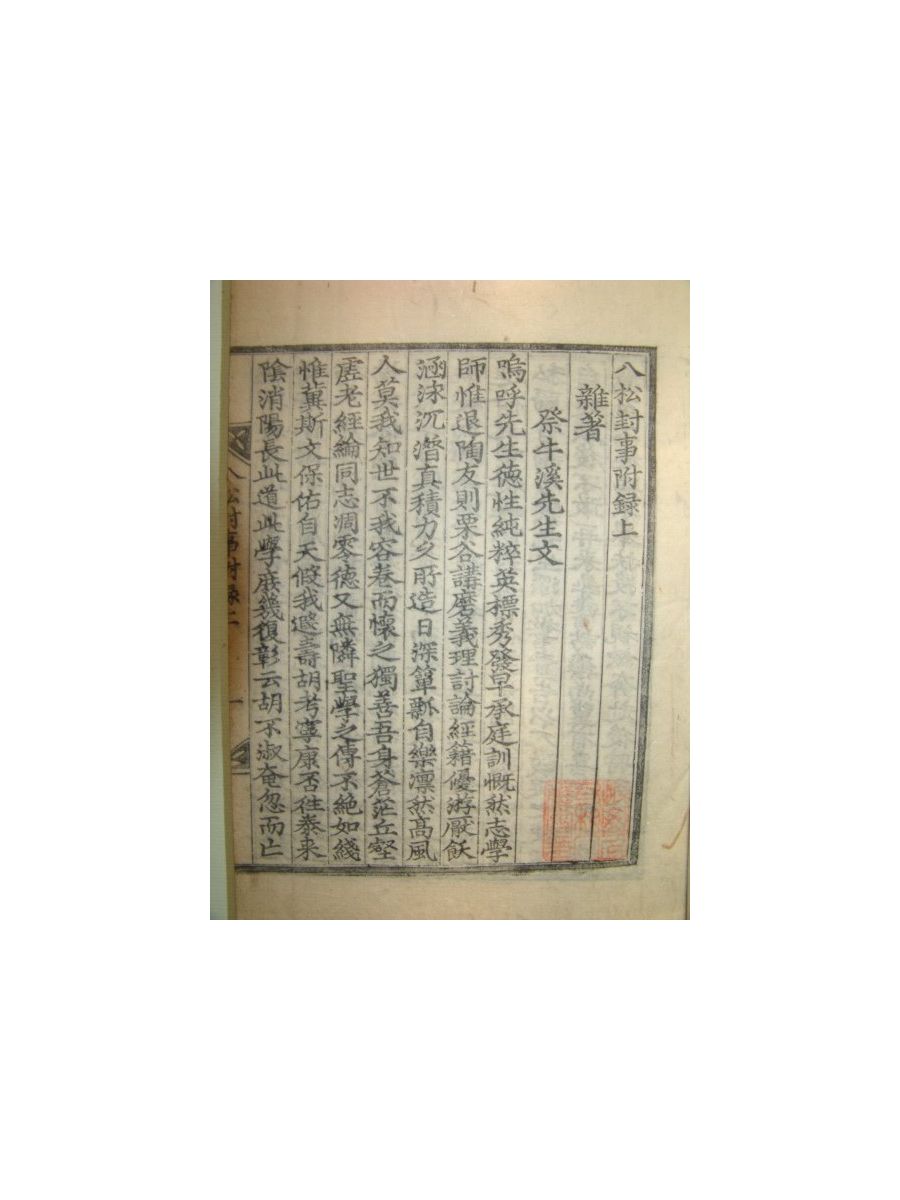 八松封事附録上
雜著
祭牛溪先生文
嗚呼先生德性純粹英標秀發早承庭訓慨然志學
師惟退陶友則栗谷講磨義理討論經籍優游厭飫
涵泳沉潛真積力久所造日深簞瓢自樂凛然高風
人莫我知世不我容卷而懷之獨善吾身蒼茫丘壑
虛老經綸同志凋零德又無隣聖學之傳不絕如綫
惟冀斯文保佑自天假我遐壽胡考寧康否往泰来
陰消陽長此道此學庶幾復彰云胡不淑奄忽而亡
八松封事附録上
一